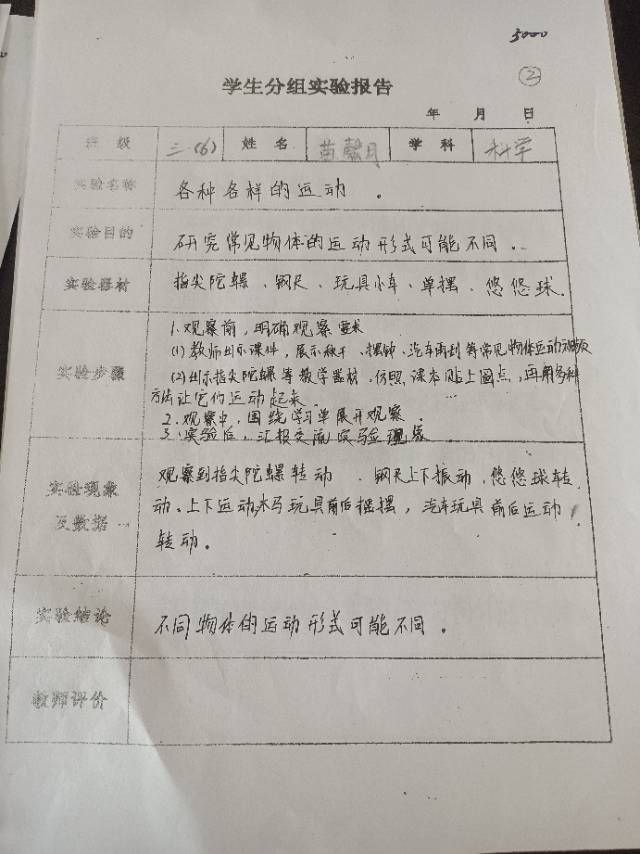 3000
②
学生分组实验报告
年 月 日
班级 三(6) 姓名 苗馨月 学科 科学
实验名称 各种各样的运动 。
实验目的 研究常见物体的运动形式可能不同 。
实验器材 指尖陀螺 、钢尺 、玩具小车 、单摆 、悠悠球.
实验步骤
1.观察前,明确观察要求
(1) 教师出示课件,展示秋千、摆钟、汽车雨刮等常见物体运动
(2) 出示指尖陀螺等教学器材,仿照课本贴上圆点,再用多种
方法让它们运动起来.
2.观察中,围绕学习单展开观察.
3.实验后,汇报交流实验现象
实验现象及数据
观察到指尖陀螺转动 、钢尺上下振动、悠悠球转
动、上下运动木马玩具前后摇摆,汽车玩具前后运动
转动。
实验结论 不同物体的运动形式可能不同 。
教师评价